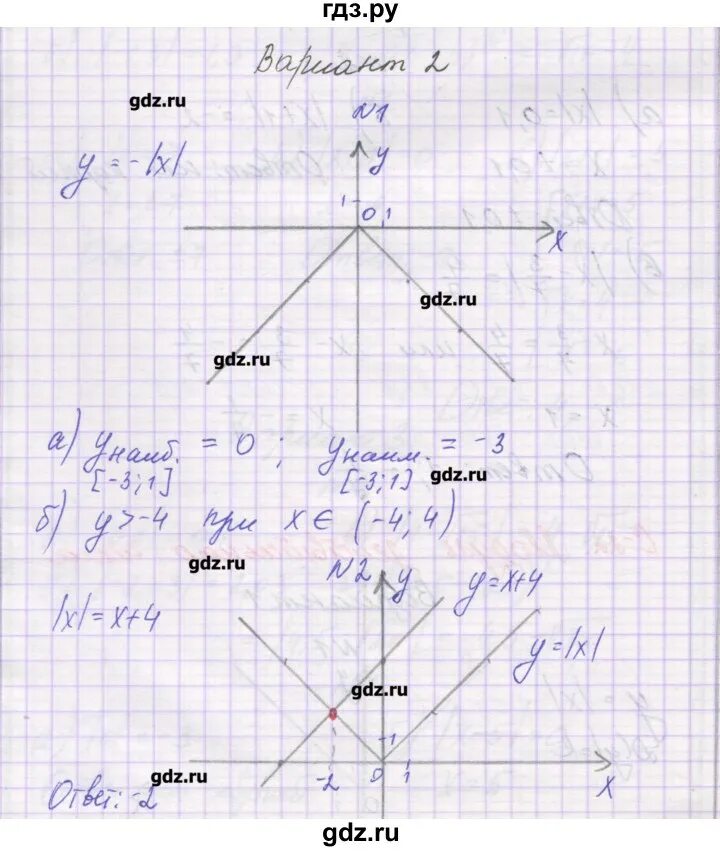 гдз.ру
Вариант 2
gdz.ru
N1
y = -|x|
y
1
0 1
x
gdz.ru
gdz.ru
а) y наиб. = 0 ; y наим. = -3
[-3;1] [-3;1]
gdz.ru
б) y > -4 при x ∈ (-4; 4)
gdz.ru
N2
y
y = x+4
|x| = x+4
y = |x|
gdz.ru
1
gdz.ru
-2 0 1
x
Ответ: -2
gdz.ru